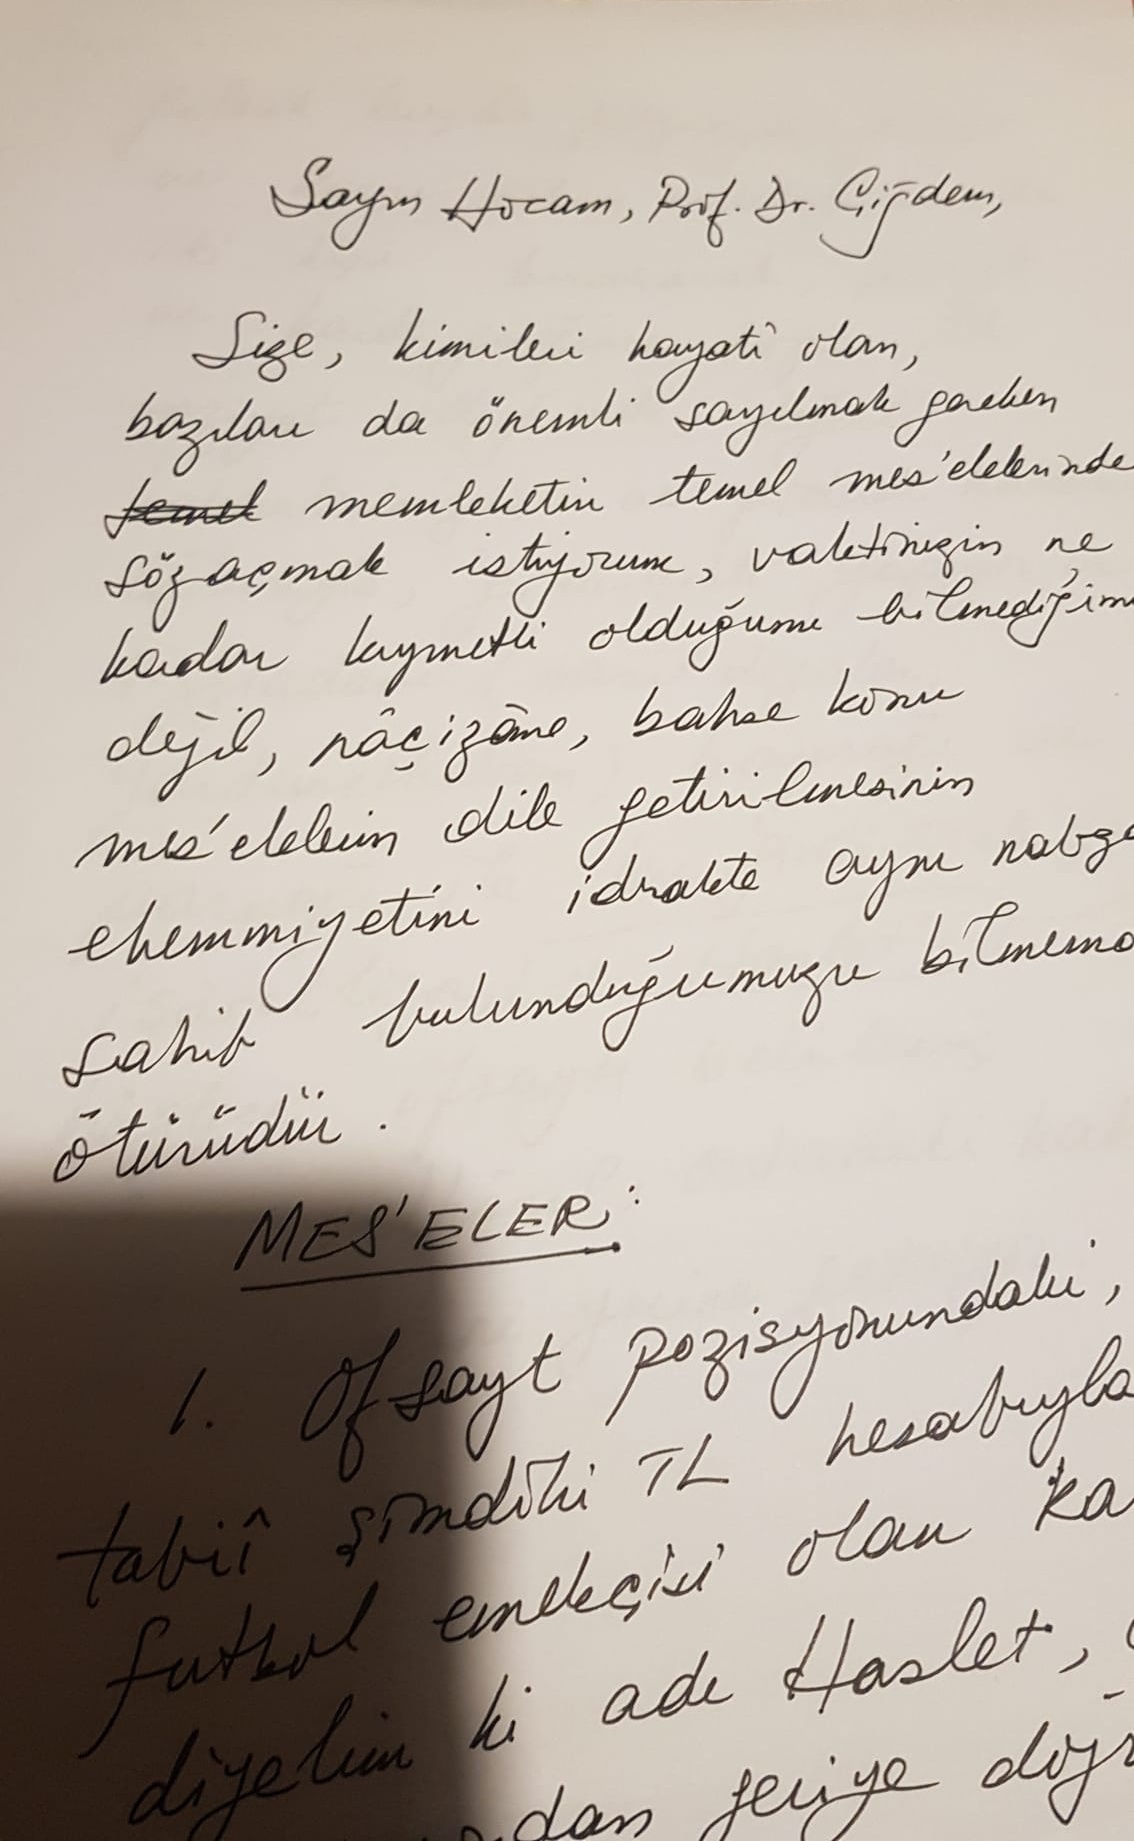 Sayın Hocam, Prof. Dr. Çiğdem,
Size, kimileri hayatî olan,
bazıları da önemli sayılmak gereken
temel memleketin temel mes'elelerinde
söz açmak istiyorum, vaktinizin ne
kadar kıymetli olduğunu bilmediğim
değil, nâçizâne, bahse konu
mes'elelerin dile getirilmesinin
ehemmiyetini idrakte aynı nabza
sahib bulunduğumuzu bilmem
ötürüdür.
MES'ELER:
1. Ofsayt pozisyonundaki,
tabiî şimdiki TL hesabıyla
futbol emekçisi olan ka
diyelim ki adı Haslet,
dan geriye doğr